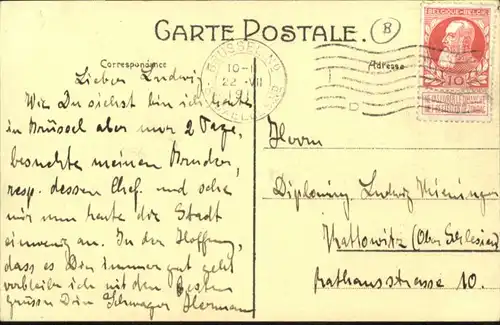 CARTE POSTALE.
B
BELGIQUE-BELGIË
10
Correspondance
Adresse
10-
22 VII
Lieber Ludwig
Wie Du siehst bin ich
in Brüssel aber nur 2 Tage,
besuchte meinen Bruder,
resp. dessen Chef. und sehe
mir nun heute die Stadt
einwenig an. In der Hoffnung,
dass es Dir immer gut geht
verbleibe ich mit den Besten
Grüssen Dein Schwager Herman
Herrn
Diploming. Ludwig
Kattowitz (Ober Schlesien)
Rathausstrasse 10.